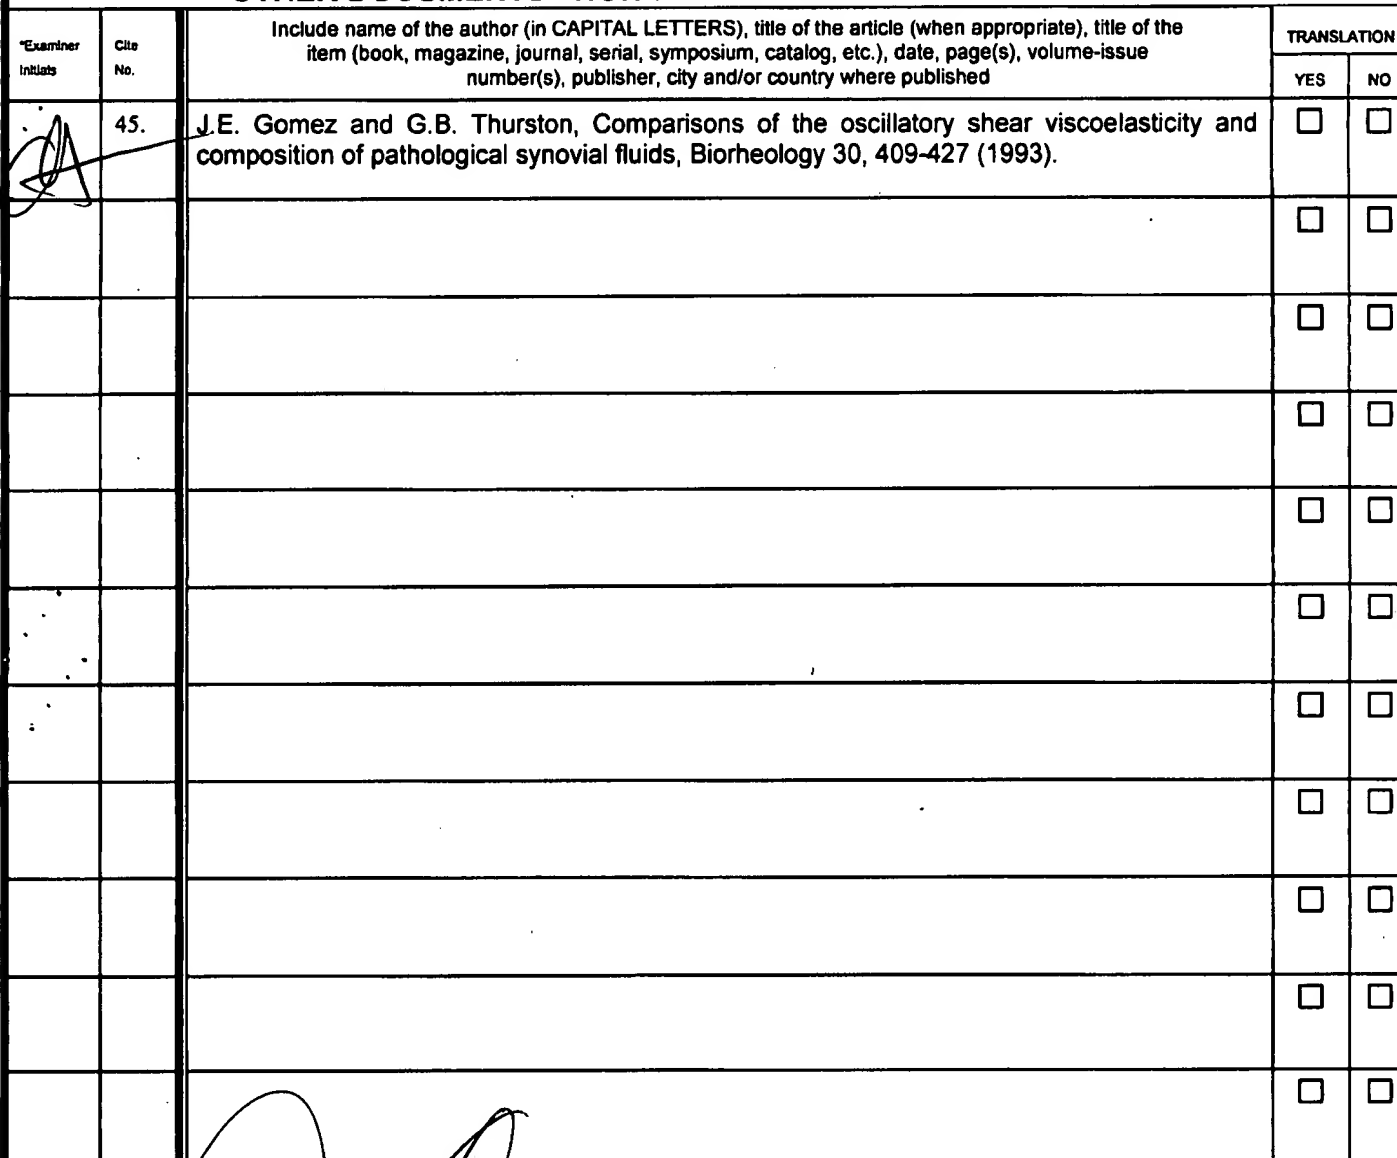 Include name of the author (in CAPITAL LETTERS), title of the article (when appropriate), title of the
item (book, magazine, journal, serial, symposium, catalog, etc.), date, page(s), volume-issue
number(s), publisher, city and/or country where published
*Examiner
Initials
Cite
No.
TRANSLATION
YES NO
45.
J.E. Gomez and G.B. Thurston, Comparisons of the oscillatory shear viscoelasticity and
composition of pathological synovial fluids, Biorheology 30, 409-427 (1993).